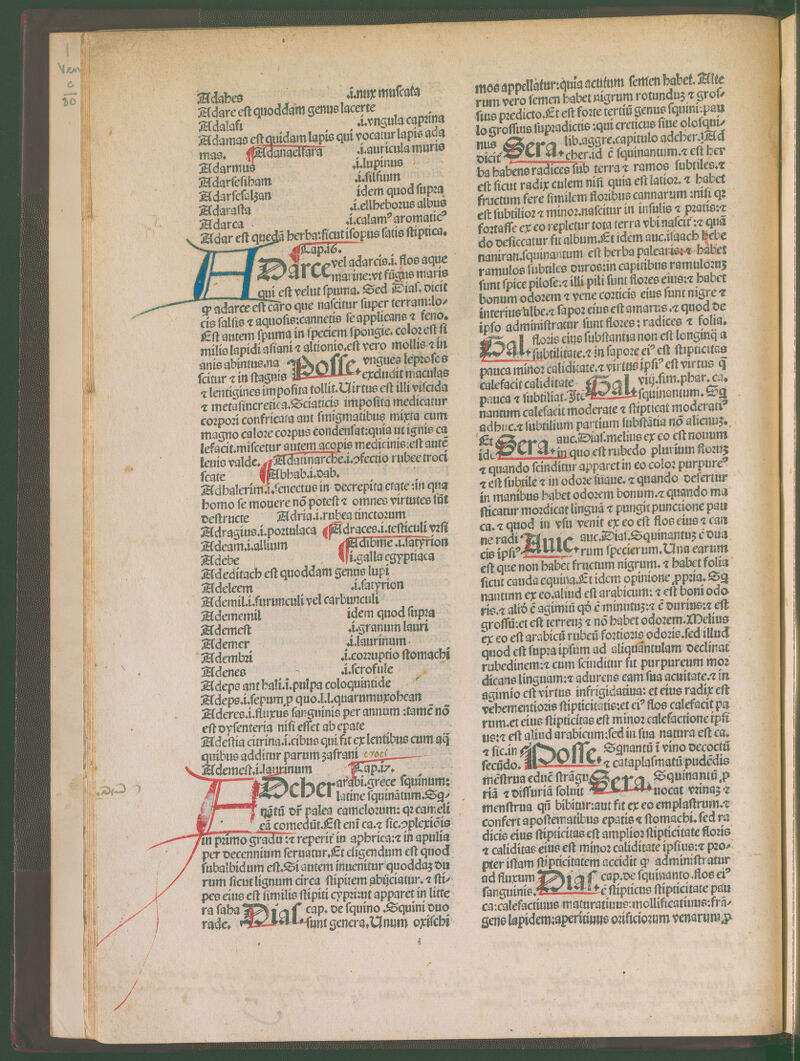 1
Ven
c
80
Adahes .i.nux muscata
Adare est quoddam genus lacerte
Adalasi .i.vngula caprina
Adamas est quidam lapis qui vocatur lapis ada
mas. ¶Adanaelfara .i.auricula muris
Adarmus .i.lupinus
Adarsesiham .i.silsium
Adarsesalzan idem quod supra
Adarasta .i.ellheborus albus
Adarca .i.calamꝰ aromaticꝰ
Adar est quedã herba:sicut isopus satis stiptica.
¶Cap.16.
ADarce vel adarcis.i. flos aque
marine:vt fũgus maris
qui est velut spuma. Sed Dias. dicit
ꝙ adarce est caro que nascitur super terram:lo-
cis salsis ⁊ aquosis:cannetis se applicans ⁊ feno.
Est autem spuma in speciem spongie. color est si
milis lapidi asiani ⁊ altionio.est vero mollis ⁊ in
anis abintus.na Posse. vngues leprosos
scitur ⁊ in stagnis excludit maculas
⁊ lentigines imposita tollit. Uirtus est illi viscida
⁊ metasincretica. Sciaticis imposita medicatur
corpori confricata aut smigmatibus mixta cum
magno calore corpus condensat:quia ut ignis ca
lefacit.miscetur autem acopis medicinis:est autẽ
lenis valde. ¶Adatinarche.i.ꝯfectio rubee troci
scate ¶Abhab.i.dab.
Adhalerim.i.senectus in decrepita etate :in qua
homo se mouere nõ potest ⁊ omnes virtutes sũt
destructe Adria.i.rubea tinctorum
Adragius.i.portulaca ¶Adraces.i.testiculi vrsi
Adeam.i.allium ¶Adibme .i.satyrion
Adebe ¶i.galla egyptiaca
Adeditach est quoddam genus lupi
Adeleem .i.satyrion
Ademil.i.furunculi vel carbunculi
Adememil idem quod supra
Ademest .i.granum lauri
Ademer .i.laurinum
Adembri .i.corruptio stomachi
Adenes .i.scrofule
Adeps ant hali.i.pulpa coloquintide
Adeps.i.sepum,p quo.l.l.quarumuxohean
Aderes.i.fluxus sanguinis per annum :tamẽ nõ
est dysenteria nisi esset ab epate
Adestia citrina.i.cibus qui fit ex lentibus cum aq̃
quibus additur parum zafrani croci
Ademest.i.laurinum ¶Cap.17.
ADcher arabi.grece squinum:
latine squinãtum. Sq-
nãtũ dr̃ palea camelorum: qz cameli
eã comedũt. Est eni ca.⁊ sic.ꝯplexiõis
in primo gradu :⁊ reperit̃ in aphrica:⁊ in apulia
per decennium seruatur. Et eligendum est quod
subalbidum est. Si autem inuenitur quoddaz du
rum sicut lignum circa stipitem abijciatur. ⁊ sti-
pes eius est similis stipiti cypri:ut apparet in litte
ra saba Dias. cap. de squino .Squini duo
rade. sunt genera. Unum oxischi
mos appellatur:quia acutum semen habet. Alte
rum vero semen habet nigrum rotunduz ⁊ gros-
sius predicto. Et est forte tertiũ genus squini:pau
lo grossius supradictis :qui creticus siue olosqui-
nus Sera. lib.aggre.capitulo adcher. Ad
dicit cher.id ẽ squinantum.⁊ est her
ba habens radices sub terra ⁊ ramos subtiles.⁊
est sicut radix culem nisi quia est latior. ⁊ habet
fructum fere similem floribus cannarum :nisi qz
est subtilior ⁊ minor.nascitur in insulis ⁊ pratis:⁊
fortasse ex eo repletur tota terra vbi nascit̃ :⁊ quã
do desiccatur fit album. Et idem auc.isaach hebe
naniran.squinantum est herba palearis:⁊ habet
ramulos subtiles duros:in capitibus ramuloruz
sunt spice pilose:⁊ illi pili sunt flores eius:⁊ habet
bonum odorem ⁊ vene corticis eius sunt nigre ⁊
interius albe.⁊ sapor eius est amarus .⁊ quod de
ipso administratur sunt flores : radices ⁊ folia.
Gal. floris eius substantia non est longinq̃ a
subtilitate.⁊ in sapore eiꝰ est stipticitas
pauca minor caliditate.⁊ virtus ipsiꝰ est virtus q̃
calefacit caliditate Gal. viij.sim.phar. ca.
pauca ⁊ subtiliat. Itẽ squinantum. Sq
nantum calefacit moderate ⁊ stipticat moderatiꝰ
adhuc.⁊ subtilium partium substãtia nõ alienuz.
Et Sera. auc. Dias.melius ex eo est nouum
ide in quo est rubedo plurium floruz
⁊ quando scinditur apparet in eo color purpureꝰ
⁊ est subtile ⁊ in odore suaue. ⁊ quando defertur
in manibus habet odorem bonum.⁊ quando ma
sticatur mordicat linguã ⁊ pungit punctione pau
ca. ⁊ quod in vsu venit ex eo est flos eius ⁊ can
ne radi Auic. auc. Dias. Squinantuz ẽ dua
cis ipsiꝰ rum specierum. Una earum
est que non habet fructum nigrum. ⁊ habet folia
sicut cauda equina. Et idem opinione ꝓpria. Sq
nantum ex eo.aliud est arabicum: ⁊ est boni odo
ris.⁊ aliõ ẽ agimiũ qõ ẽ minutuz:⁊ ẽ durius:⁊ est
grossũ:et est terreuz ⁊ nõ habet odorem. Melius
ex eo est arabicũ rubeũ fortioris odoris.sed illud
quod est supra ipsum ad aliquantulam declinat
rubedinem:⁊ cum scinditur fit purpureum mor
dicans linguam:⁊ adurens eam sua acuitate.⁊ in
agimio est virtus infrigidatiua: et eius radix est
vehementioris stipticitatis:et eiꝰ flos calefacit pa
rum.et eius stipticitas est minor calefactione ipsi
us:⁊ est aliud arabicum:sed in sua natura est ca.
⁊ sic.in Posse. Sqnantũ ĩ vino decoctũ
secũdo. ⁊ cataplasmatũ pudẽdis
mẽstrua educ̃ strãgu Sera. Squinantũ ꝓ
riã ⁊ dissuriã soluit uocat vrinaz ⁊
menstrua qñ bibitur:aut fit ex eo emplastrum.⁊
confert apostematibus epatis ⁊ stomachi. sed ra
dicis eius stipticitas est amplior stipticitate floris
⁊ caliditas eius est minor caliditate ipsius:⁊ pro-
pter istam stipticitatem accidit ꝙ administratur
ad fluxum Dias. cap.de squinanto .flos eiꝰ
sanguinis. ẽ stipticus stipticitate pau
ca:calefactiuus maturatiuus:mollificatiuus:frã-
gens lapidem:aperitiuus orificiorum venarum,p